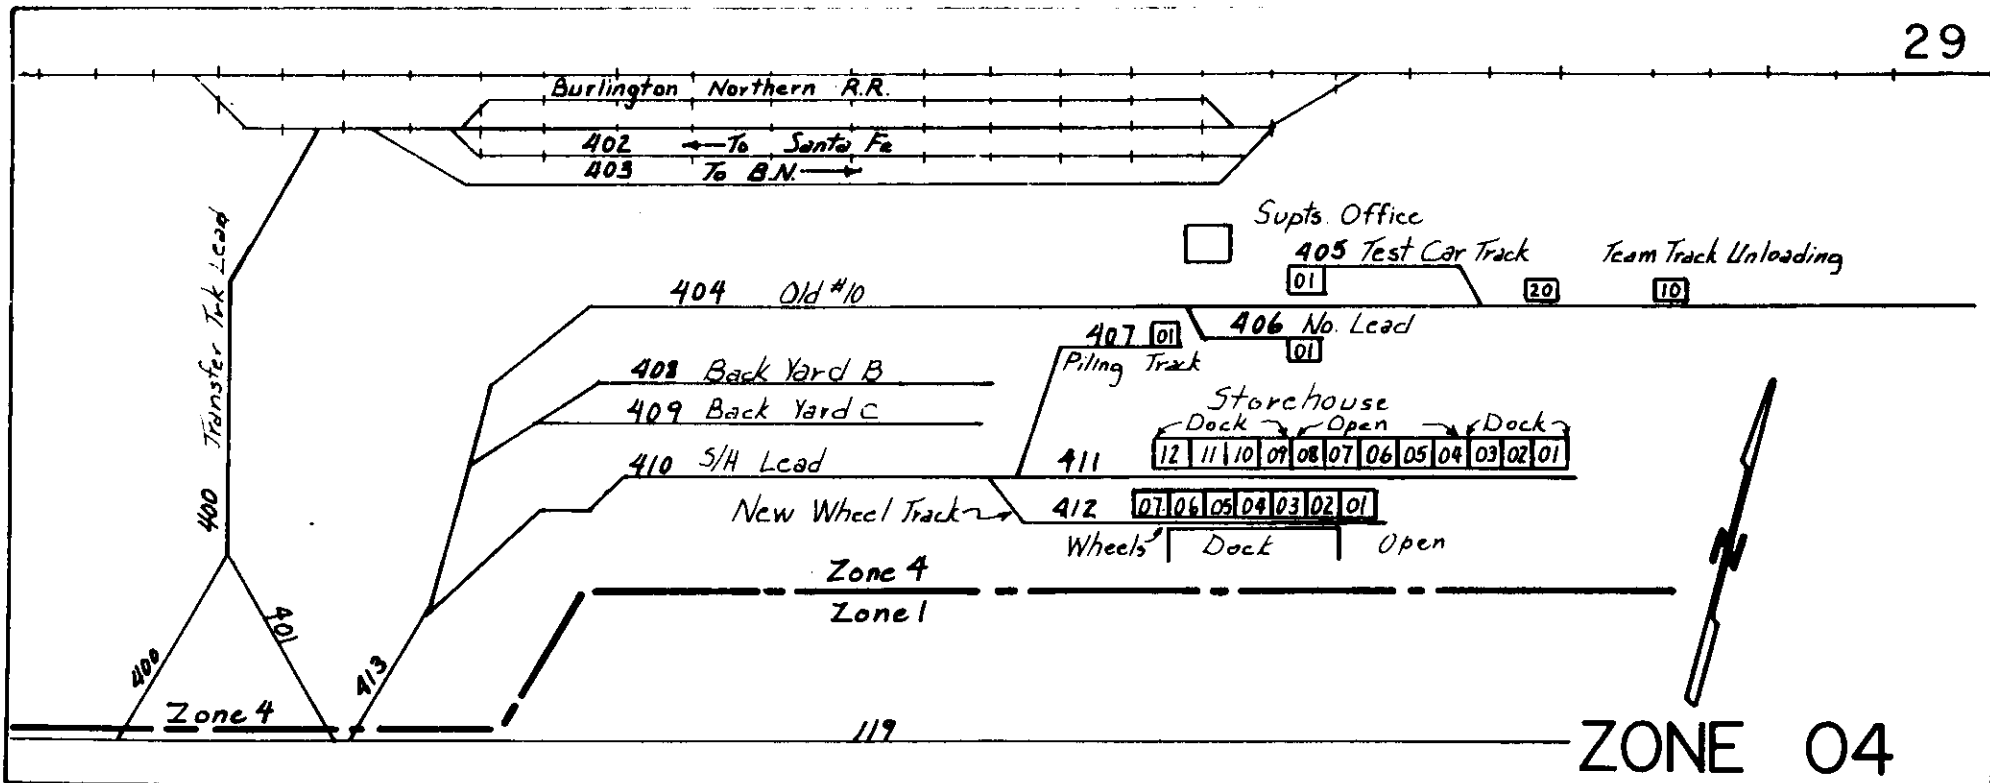 29
Burlington Northern R.R.
402 ←To Santa Fe
403 To B.N.→
Supts. Office
405 Test Car Track
Team Track Unloading
01
20
10
404 Old #10
400 Transfer Trk Lead
407 01
406 No. Lead
01
Piling Track
408 Back Yard B
409 Back Yard C
Storehouse
Dock Open Dock
410 S/H Lead
411
12 11 10 09 08 07 06 05 04 03 02 01
New Wheel Track
412
07 06 05 04 03 02 01
Wheels Dock Open
N
Zone 4
Zone 1
401
400
413
Zone 4
119
ZONE 04